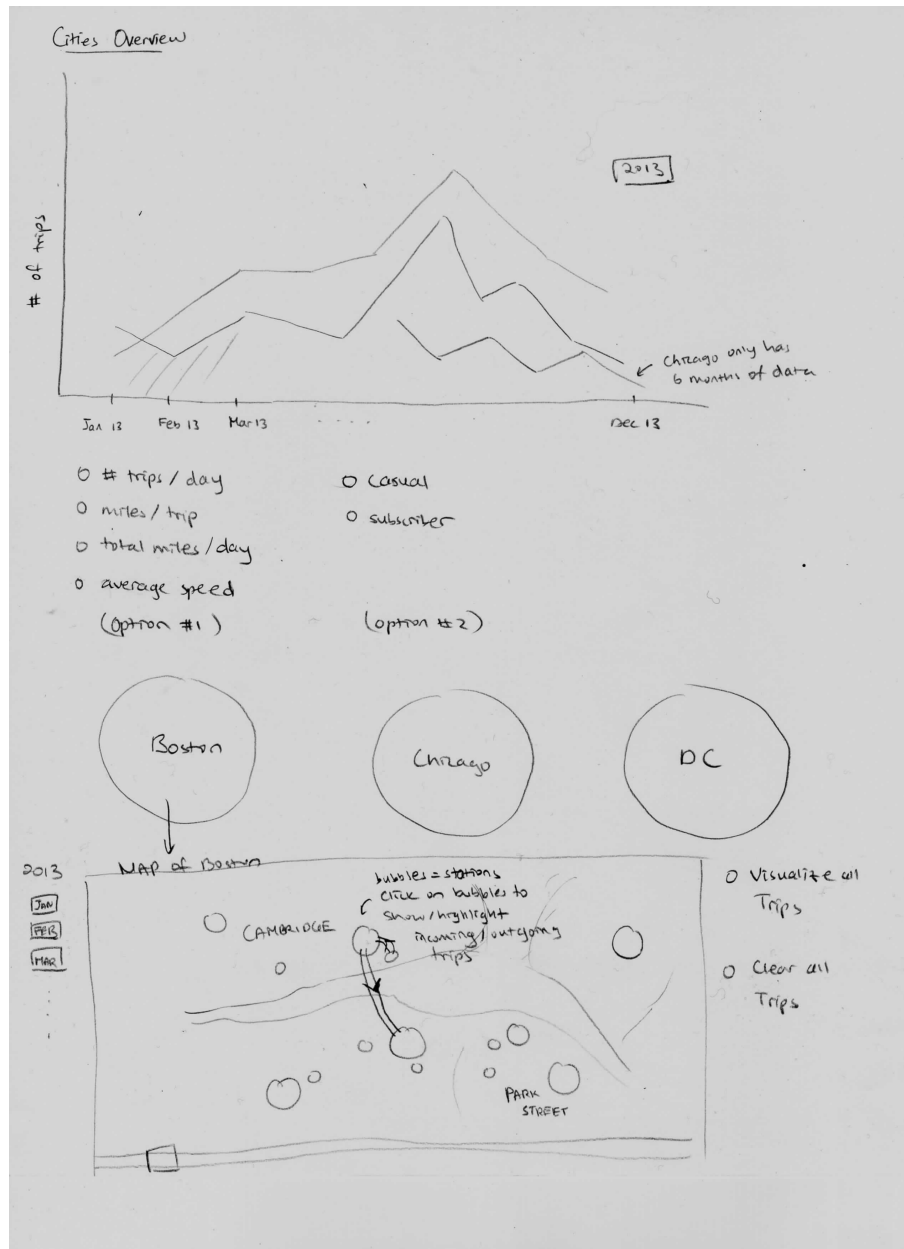 Cities Overview
2013
# of trips
Chicago only has
6 months of data
Jan 13 Feb 13 Mar 13 ..... Dec 13
# trips / day
miles / trip
total miles / day
average speed
(option #1)
casual
subscriber
(option #2)
Boston
Chicago
DC
2013
JAN
FEB
MAR
MAP of Boston
bubbles = stations
click on bubbles to
show/highlight
incoming/outgoing
trips
CAMBRIDGE
PARK
STREET
Visualize all
Trips
Clear all
Trips